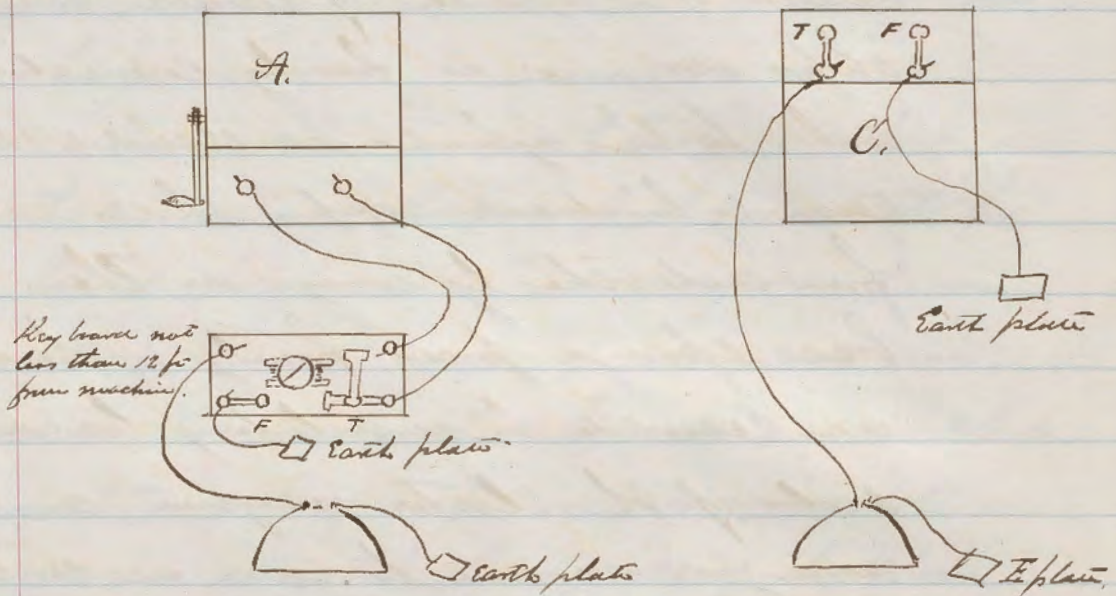 A.
T F
C.
Earth plate
Key board not
less than 12 ft
from machine.
F T
Earth plate
Earth plate
E. plate.